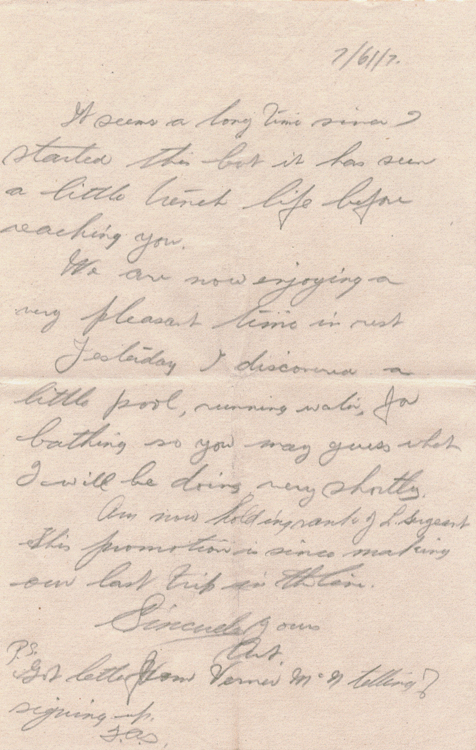 7/6/17.
It seems a long time since I
started this but it has seen
a little trench life before
reaching you.
We are now enjoying a
very pleasant time in rest
Yesterday I discovered a
little pool, running water, for
bathing so you may guess what
I will be doing very shortly.
Am now holding rank of L. Sergeant
This promotion is since making
our last trip in th line.
Sincerely Yours
Art.
P.S.
Got letter from Verner McN telling of
signing up.